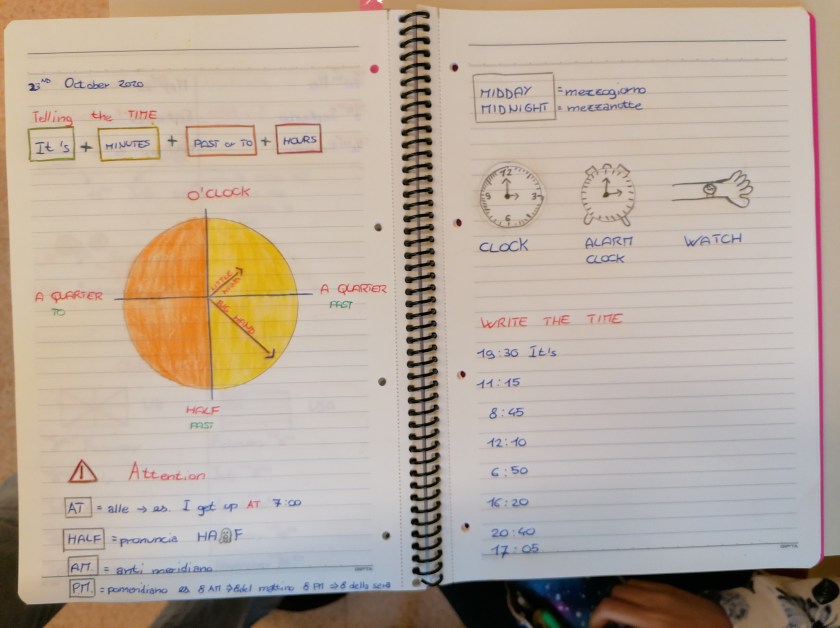 23ND October 2020
Telling the TIME
It's + MINUTES + PAST or TO + HOURS
O'CLOCK
A QUARTER
TO
LITTLE HAND
BIG HAND
A QUARTER
PAST
HALF
PAST
Attention
AT = alle → es. I get up AT 7:00
HALF = pronuncia HA F
AM. = anti meridiano
PM. = pomeridiano es 8 AM → 8 del mattino 8 PM → 8 della sera
MIDDAY = mezzogiorno
MIDNIGHT = mezzanotte
12
9 3
6
CLOCK
ALARM
CLOCK
WATCH
WRITE THE TIME
19:30 It's
11:15
8:45
12:10
6:50
16:20
20:40
17:05